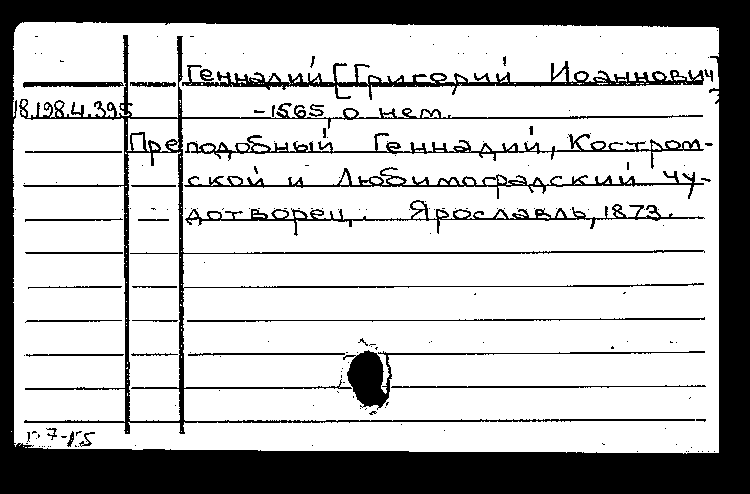 Геннадий [Григорий Иоаннович]
18.198.4.395 -1565, о нем.
Преподобный Геннадий, Костром-
ской и Любимоградский чу-
дотворец. Ярославль, 1873.